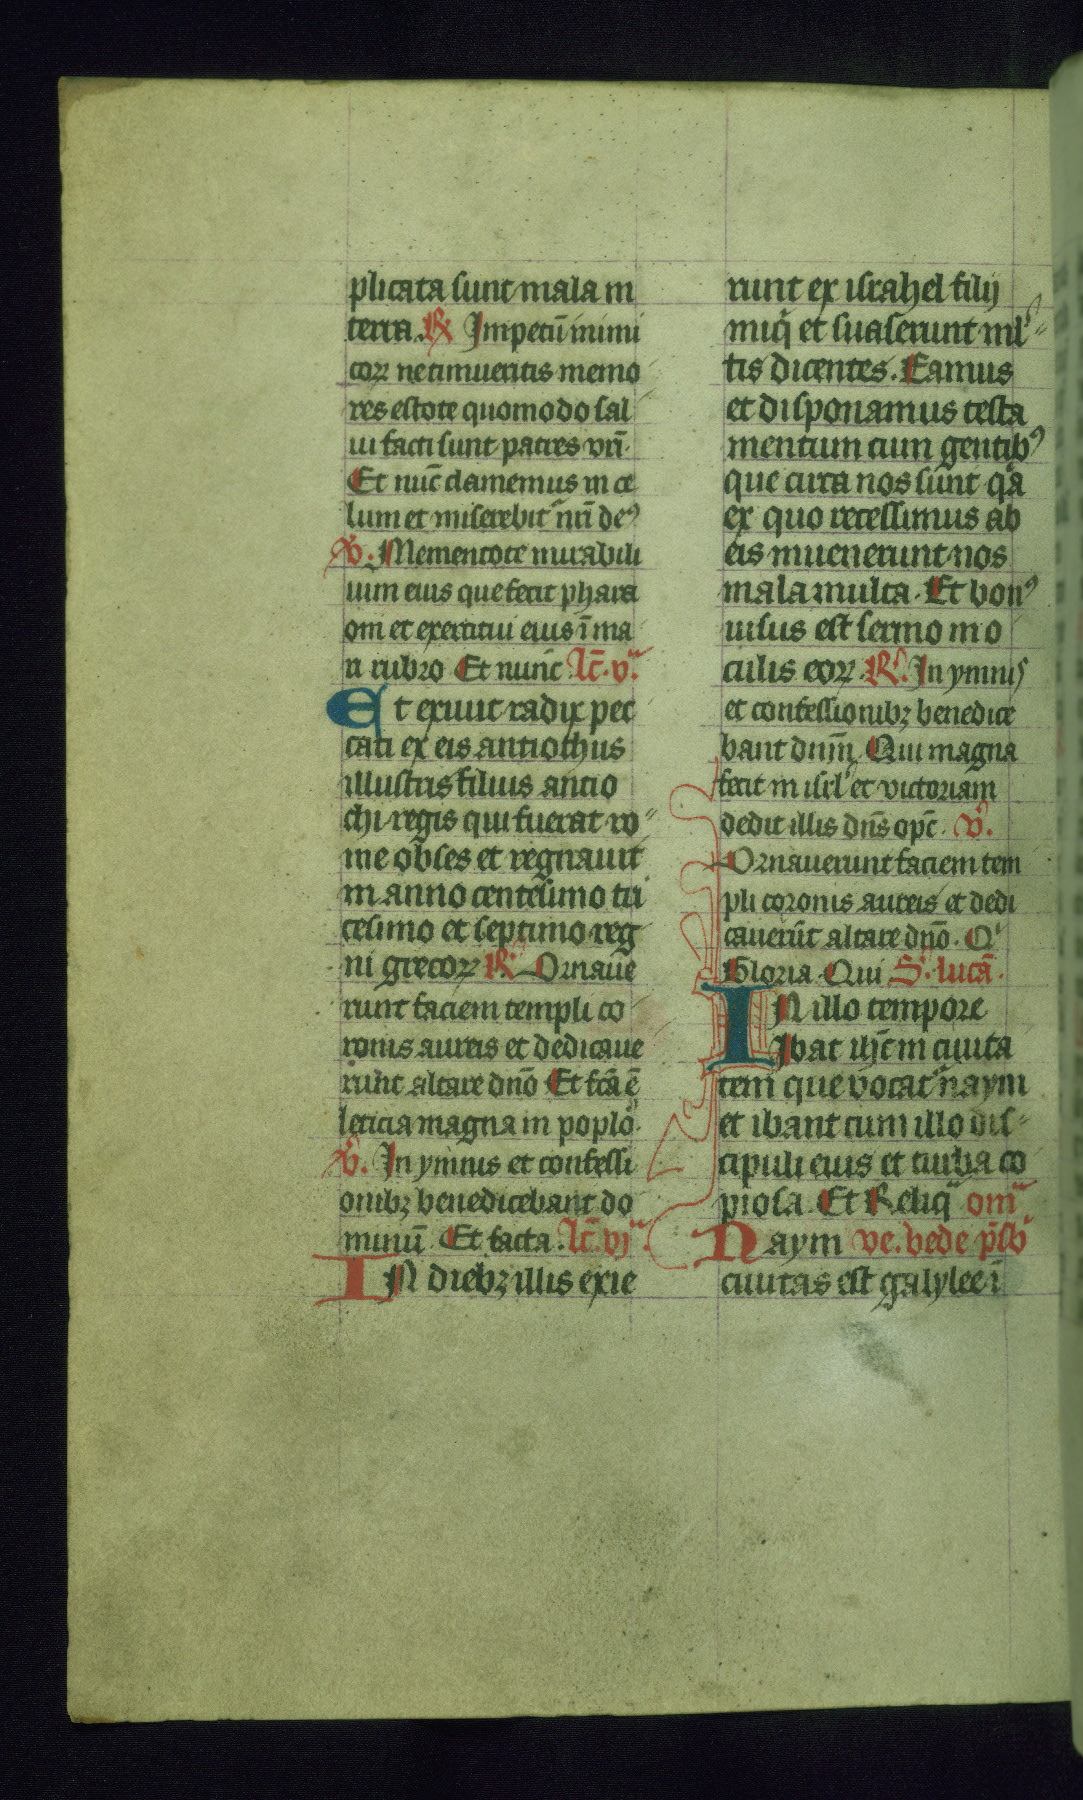 plicata sunt mala in
terra. R̃ Impetū inimi
coꝝ ne timueritis memo
res estote quomodo sal
ui facti sunt patres vr̄i.
Et nūc clamemus in ce
lum et miserebit᷑ nr̄i deꝰ
v̓. Mementote mirabili
um eius que fecit phara
om et exercitui eius ī ma
ri rubro Et nunc lc̄. v.
Et exiuit radix pec
cati ex eis antiochus
illustris filius antio
chi regis qui fuerat ro
me obses et regnauit
in anno centesimo tri
cesimo et septimo reg
ni grecoꝝ R̓. Ornaue
runt faciem templi co
ronis aureis et dedicaue
runt altare dn̄o Et fc̄a ē
leticia magna in poplo.
v̓. In ymnus et confessi
onibꝫ benedicebant do
minū. Et facta. lc̄. vj.
In diebꝫ illis exie
runt ex israhel filij
iniq̄ et suaserunt ml̓
tis dicentes. Eamus
et disponamus testa
mentum cum gentibꝰ
que circa nos sunt q̄a
ex quo recessimus ab
eis inuenerunt nos
mala multa. Et bonꝰ
uisus est sermo in o
culis eoꝝ. R̓. In ymnis
et confessionibꝫ benedice
bant dn̄m. Qui magna
fecit in isrl̓ et victoriam
dedit illis dn̄s op̄c. v̓.
Ornauerunt faciem tem
pli coronis aureis et dedi
cauerūt altare dn̄o. Qͥ
Gloria. Qui S̓. lucā.
In illo tempore
Ibat ih̄c in ciuita
tem que vocat᷑ naym
et ibant cum illo dis
cipuli eius et turba co
piosa. Et Reliq̄ om̄
Naym ve. bede p̄sb̓
ciuitas est galylee ī